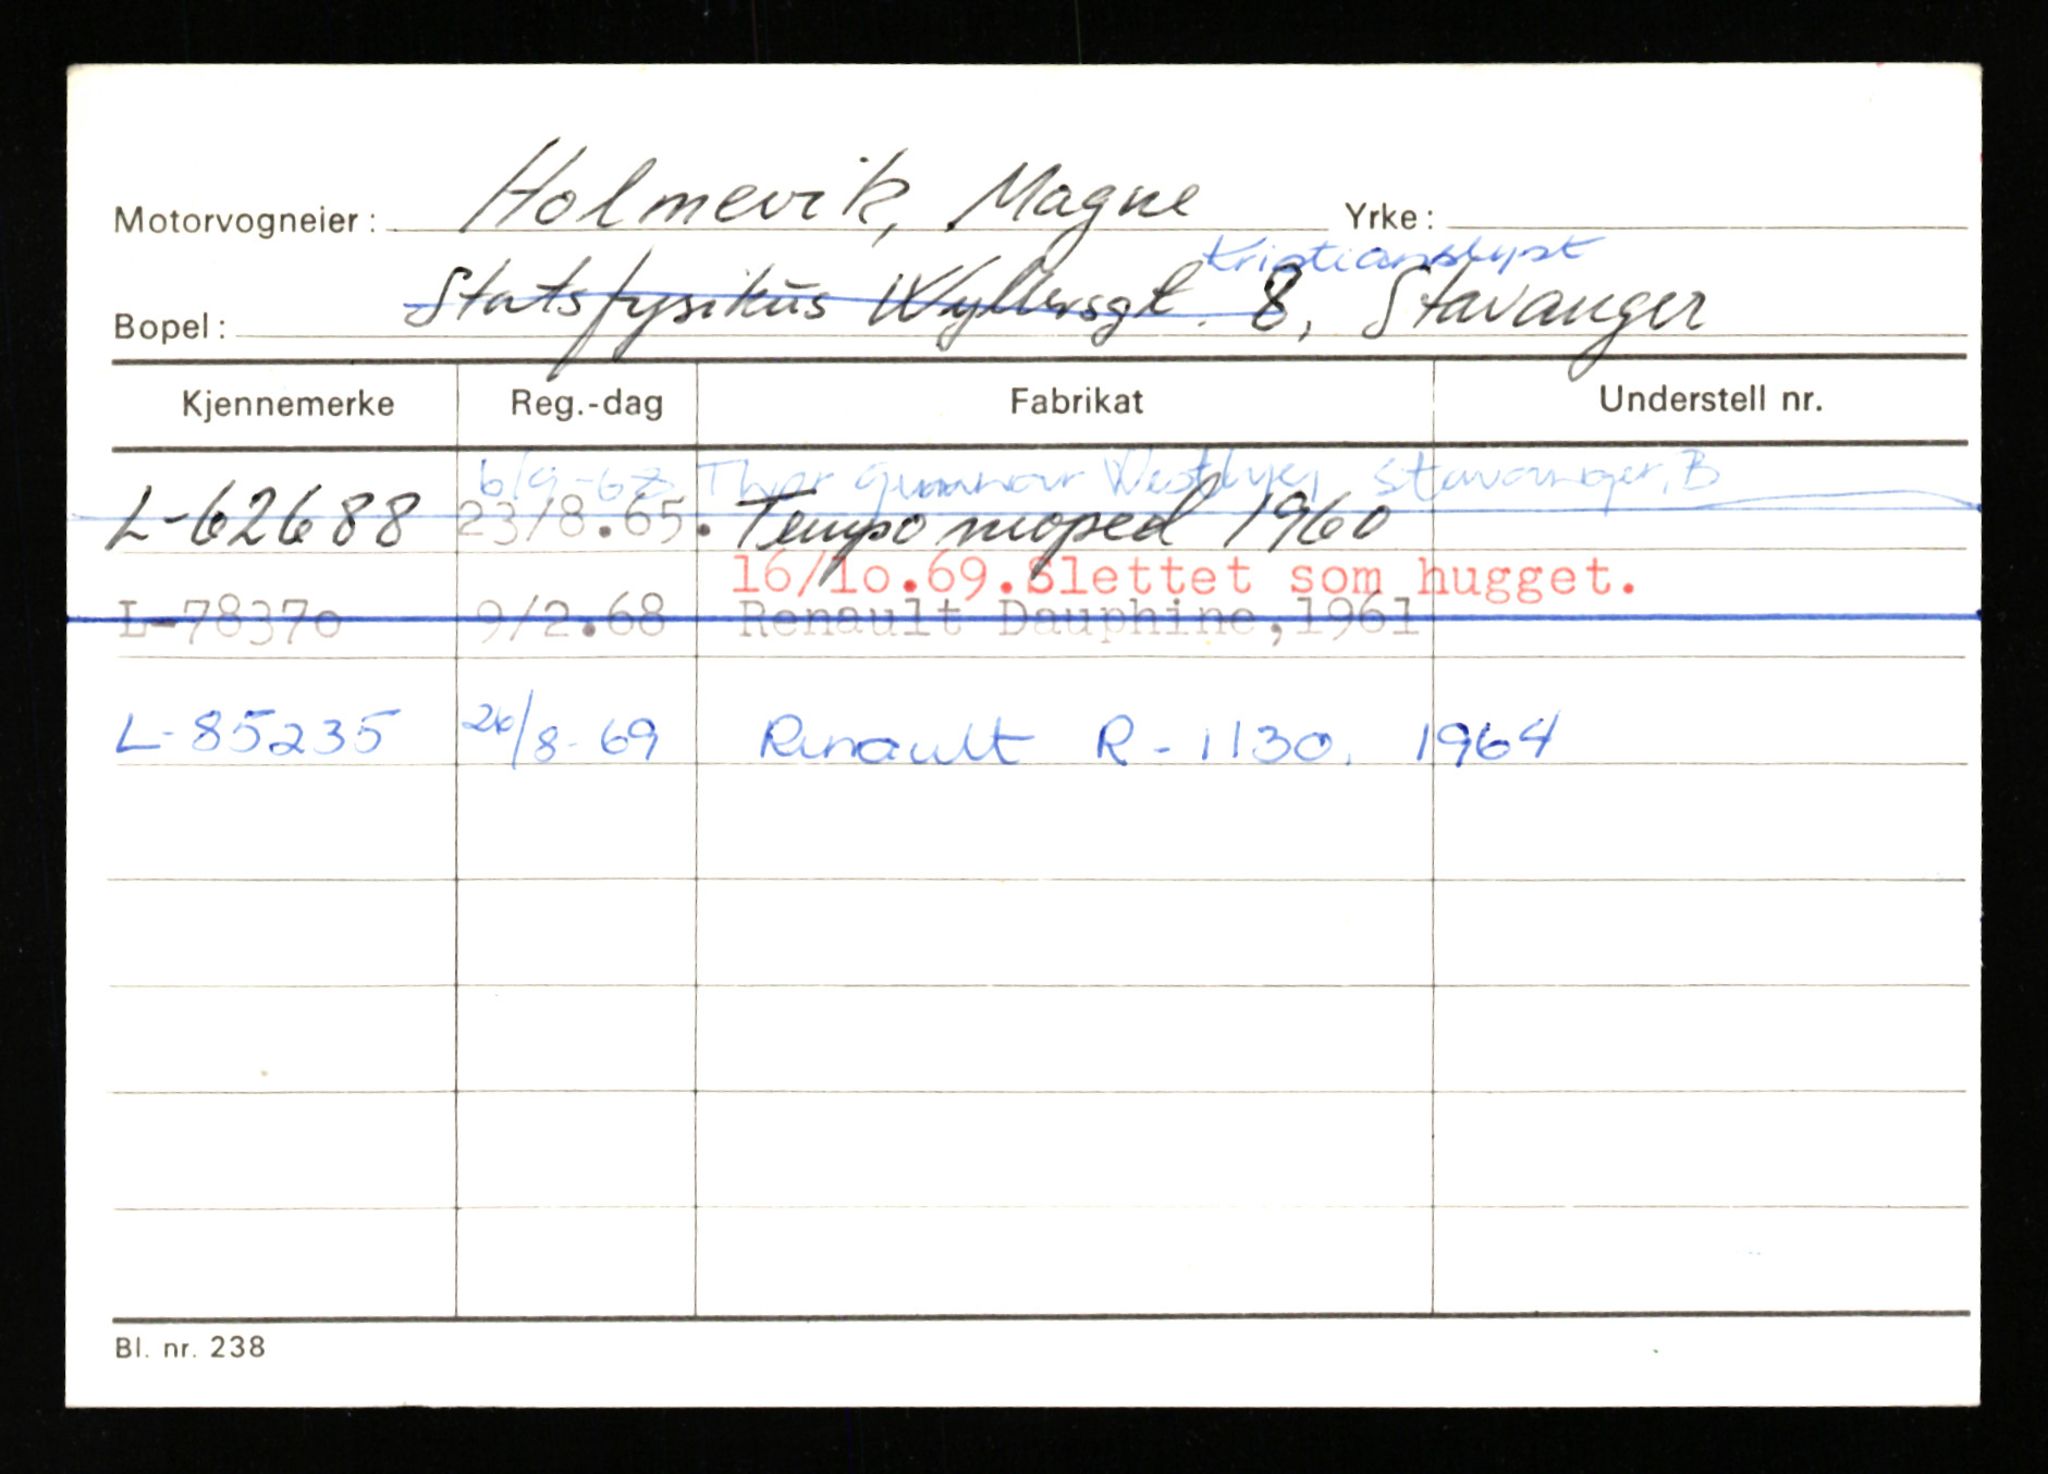 Motorvogneier: Holmevik, Magne Yrke:
Kristianslyst
Bopel: Statsfysikus Wyllersgt. 8, Stavanger
Kjennemerke Reg.-dag Fabrikat Understell nr.
6/9-68 Thor Gunnar Stavanger, B
L-62688 23/8.65. Tempo moped 1960
16/10.69. Slettet som hugget.
L-78370 9/2.68 Renault Dauphine, 1961
L-85235 26/8-69 Renault R-1130. 1964
Bl. nr. 238